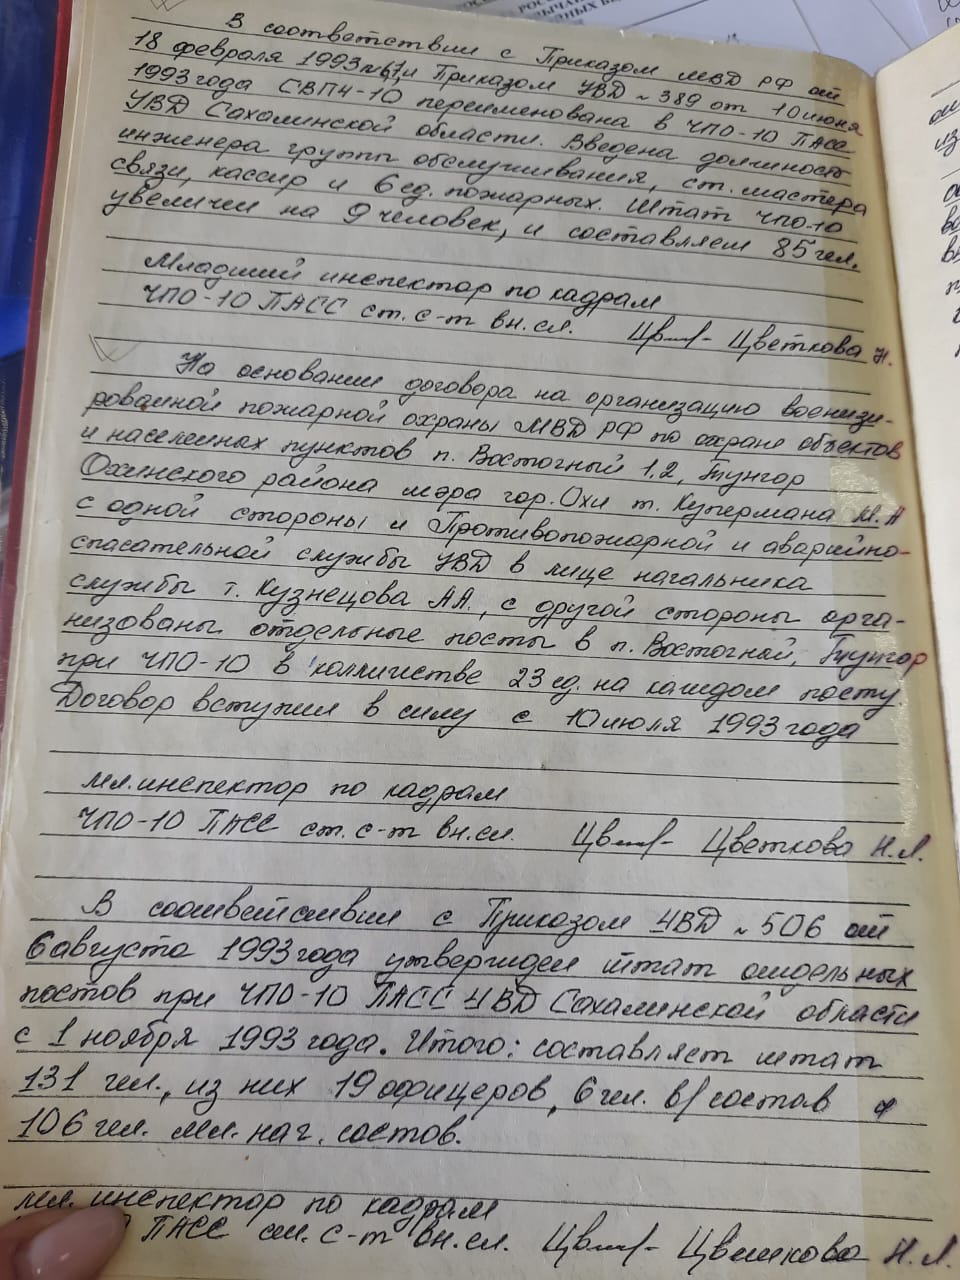 В соответствии с Приказом МВД РФ от
18 февраля 1993 № 61 и Приказом УВД № 389 от 10 июня
1993 года СВПЧ-10 переименована в ЧПО-10 ПАСС
УВД Сахалинской области. Введена должность
инженера группы обслуживания, ст. мастера
связи, кассир и 6 ед. пожарных. Штат ЧПО-10
увеличен на 9 человек, и составляет 85 чел.
Младший инспектор по кадрам
ЧПО-10 ПАСС ст. с-т вн.сл. Цветкова Н.
На основании договора на организацию военизи-
рованной пожарной охраны МВД РФ по охране объектов
и населенных пунктов п. Восточный 1,2, Тунгор
Охинского района мэра гор. Охи т. Купермана И.А
с одной стороны и Противопожарной и аварийно-
спасательной службы УВД в лице начальника
службы т. Кузнецова А.А., с другой стороны орга-
низованы отдельные посты в п. Восточный, Тунгор
при ЧПО-10 в колличестве 23 ед. на каждом посту.
Договор вступил в силу с 10 июля 1993 года
мл.инспектор по кадрам
ЧПО-10 ПАСС ст. с-т вн.сл. Цветкова Н.Л.
В соответствии с Приказом УВД № 506 от
6 августа 1993 года утвержден штат отдельных
постов при ЧПО-10 ПАСС УВД Сахалинской области
с 1 ноября 1993 года. Итого: составляет штат
131 чел., из них 19 офицеров, 6 чел. в/состав и
106 чел. мл. нач. состов.
мл. инспектор по кадрам
ПАСС ст. с-т вн.сл. Цветкова Н.Л.